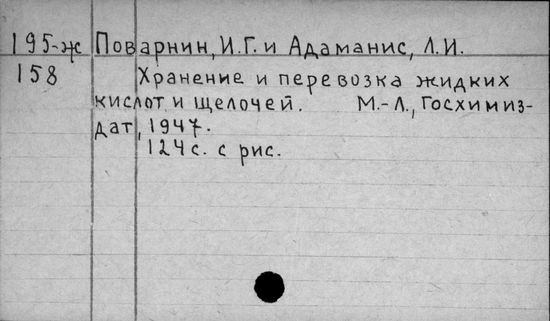 195-ж Поварнин, И.Г. и Адаманис, Л.И.
158 Хранение и перевозка жидких
кислот и щелочей. М.-Л., Госхимиз-
дат, 1947.
124 с. с рис.